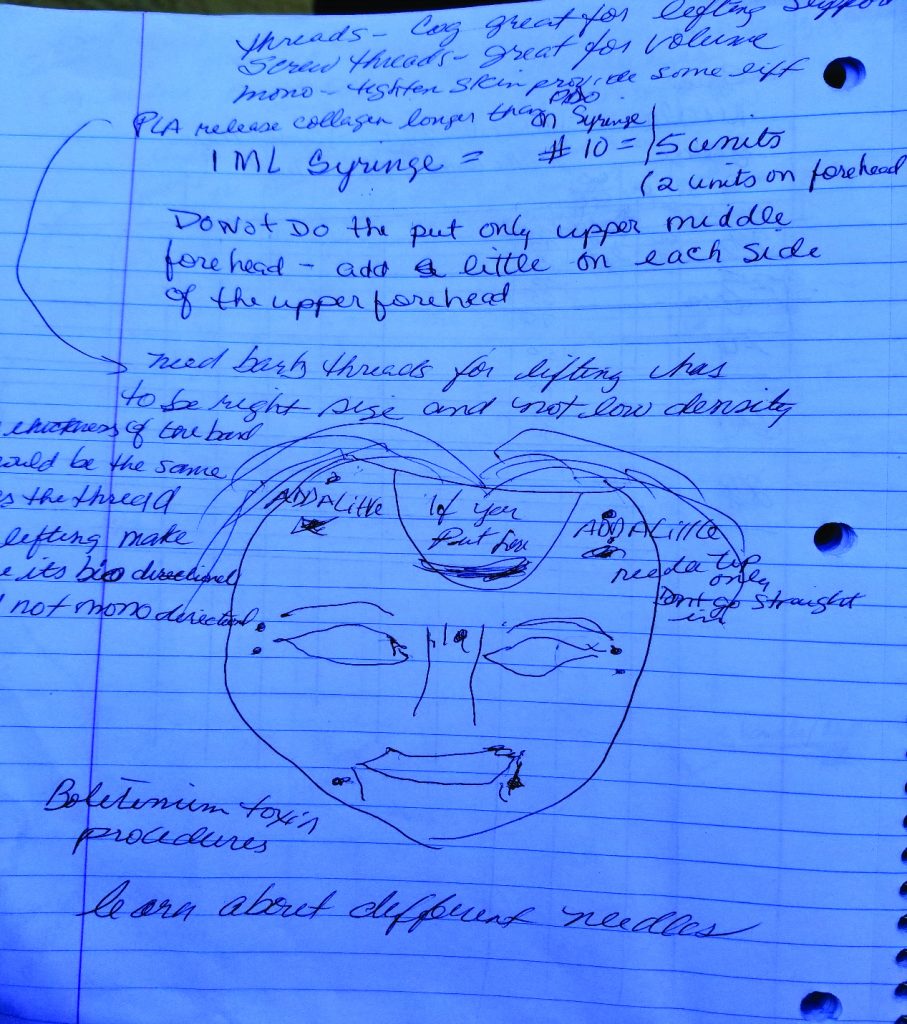 threads - Cog great for lefting support
Screw threads - great for volume
mono - tighten skin provide some lift
PLA release collagen longer than PDO
on Syringe
1 ML Syringe = # 10 = 5 units
(2 units on forehead
DO NOT DO the put only upper middle
forehead - add a little on each side
of the upper forehead
need barb threads for lifting has
to be right size and not low density
thickness of the barb
would be the same
as the thread
lefting make
its bio directional
not mono directional
ADD A Little
If you
Put here
ADD A Little
need a tip
only
Dont go straight
in
Boletenium toxin
procedures
learn about different needles